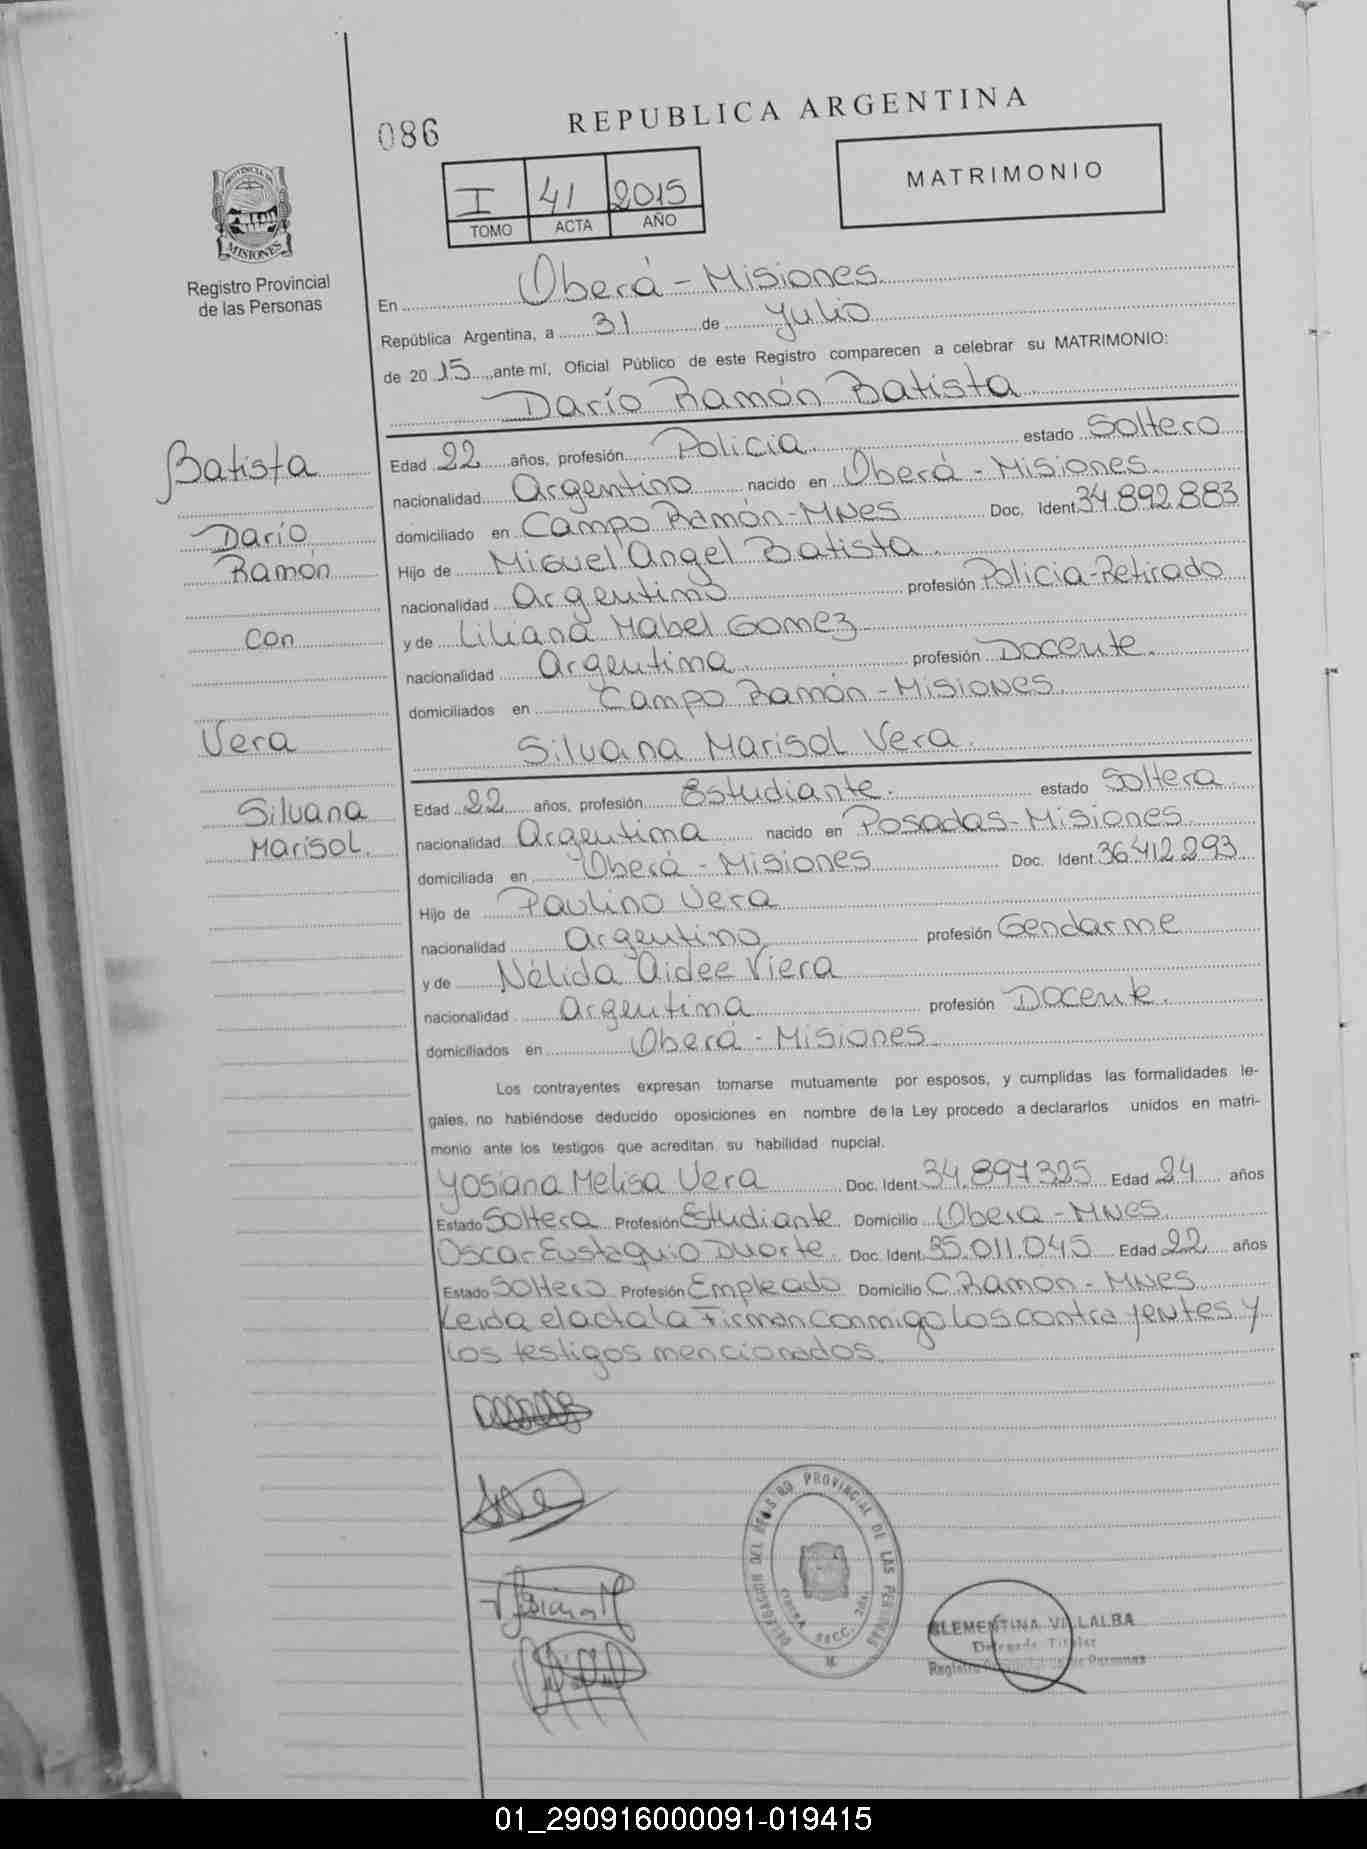 086
REPUBLICA ARGENTINA
I 41 2015
TOMO ACTA AÑO
MATRIMONIO
PROVINCIA DE
MISIONES
Registro Provincial
de las Personas
En Oberá - Misiones
República Argentina, a 31 de Julio
de 2015, ante mí, Oficial Público de este Registro comparecen a celebrar su MATRIMONIO:
Darío Ramón Batista
Batista
Darío
Ramón
con
Vera
Silvana
Marisol.
Edad 22 años, profesión Policia estado Soltero
nacionalidad Argentino nacido en Oberá - Misiones
domiciliado en Campo Ramón - MNes Doc. Ident 34.892.883
Hijo de Miguel Angel Batista
nacionalidad Argentino profesión Policia - Retirado
y de Liliana Mabel Gomez
nacionalidad Argentina profesión Docente.
domiciliados en Campo Ramón - Misiones.
Silvana Marisol Vera.
Edad 22 años, profesión Estudiante. estado Soltera.
nacionalidad Argentina nacido en Posadas - Misiones
domiciliada en Oberá - Misiones Doc. Ident 36.412.293
Hijo de Paulino Vera
nacionalidad Argentino profesión Gendarme
y de Nélida Aidee Viera
nacionalidad Argentina profesión Docente.
domiciliados en Oberá - Misiones
Los contrayentes expresan tomarse mutuamente por esposos, y cumplidas las formalidades le-
gales, no habiéndose deducido oposiciones en nombre de la Ley procedo a declararlos unidos en matri-
monio ante los testigos que acreditan su habilidad nupcial.
Yosiana Melisa Vera Doc. Ident 34.897.325 Edad 24 años
Estado Soltera Profesión Estudiante Domicilio Obera - MNes
Oscar Eustaquio Duarte. Doc. Ident 35.011.045 Edad 22 años
Estado Soltero Profesión Empleado Domicilio C. Ramón - MNes
Leida el acta la Firman conmigo los contrayentes y
los testigos mencionados
DELEGACION DEL REGISTRO PROVINCIAL DE LAS PERSONAS
CLEMENTINA VILLALBA
Delegada Titular
Registro Provincial de las Personas
01_290916000091-019415